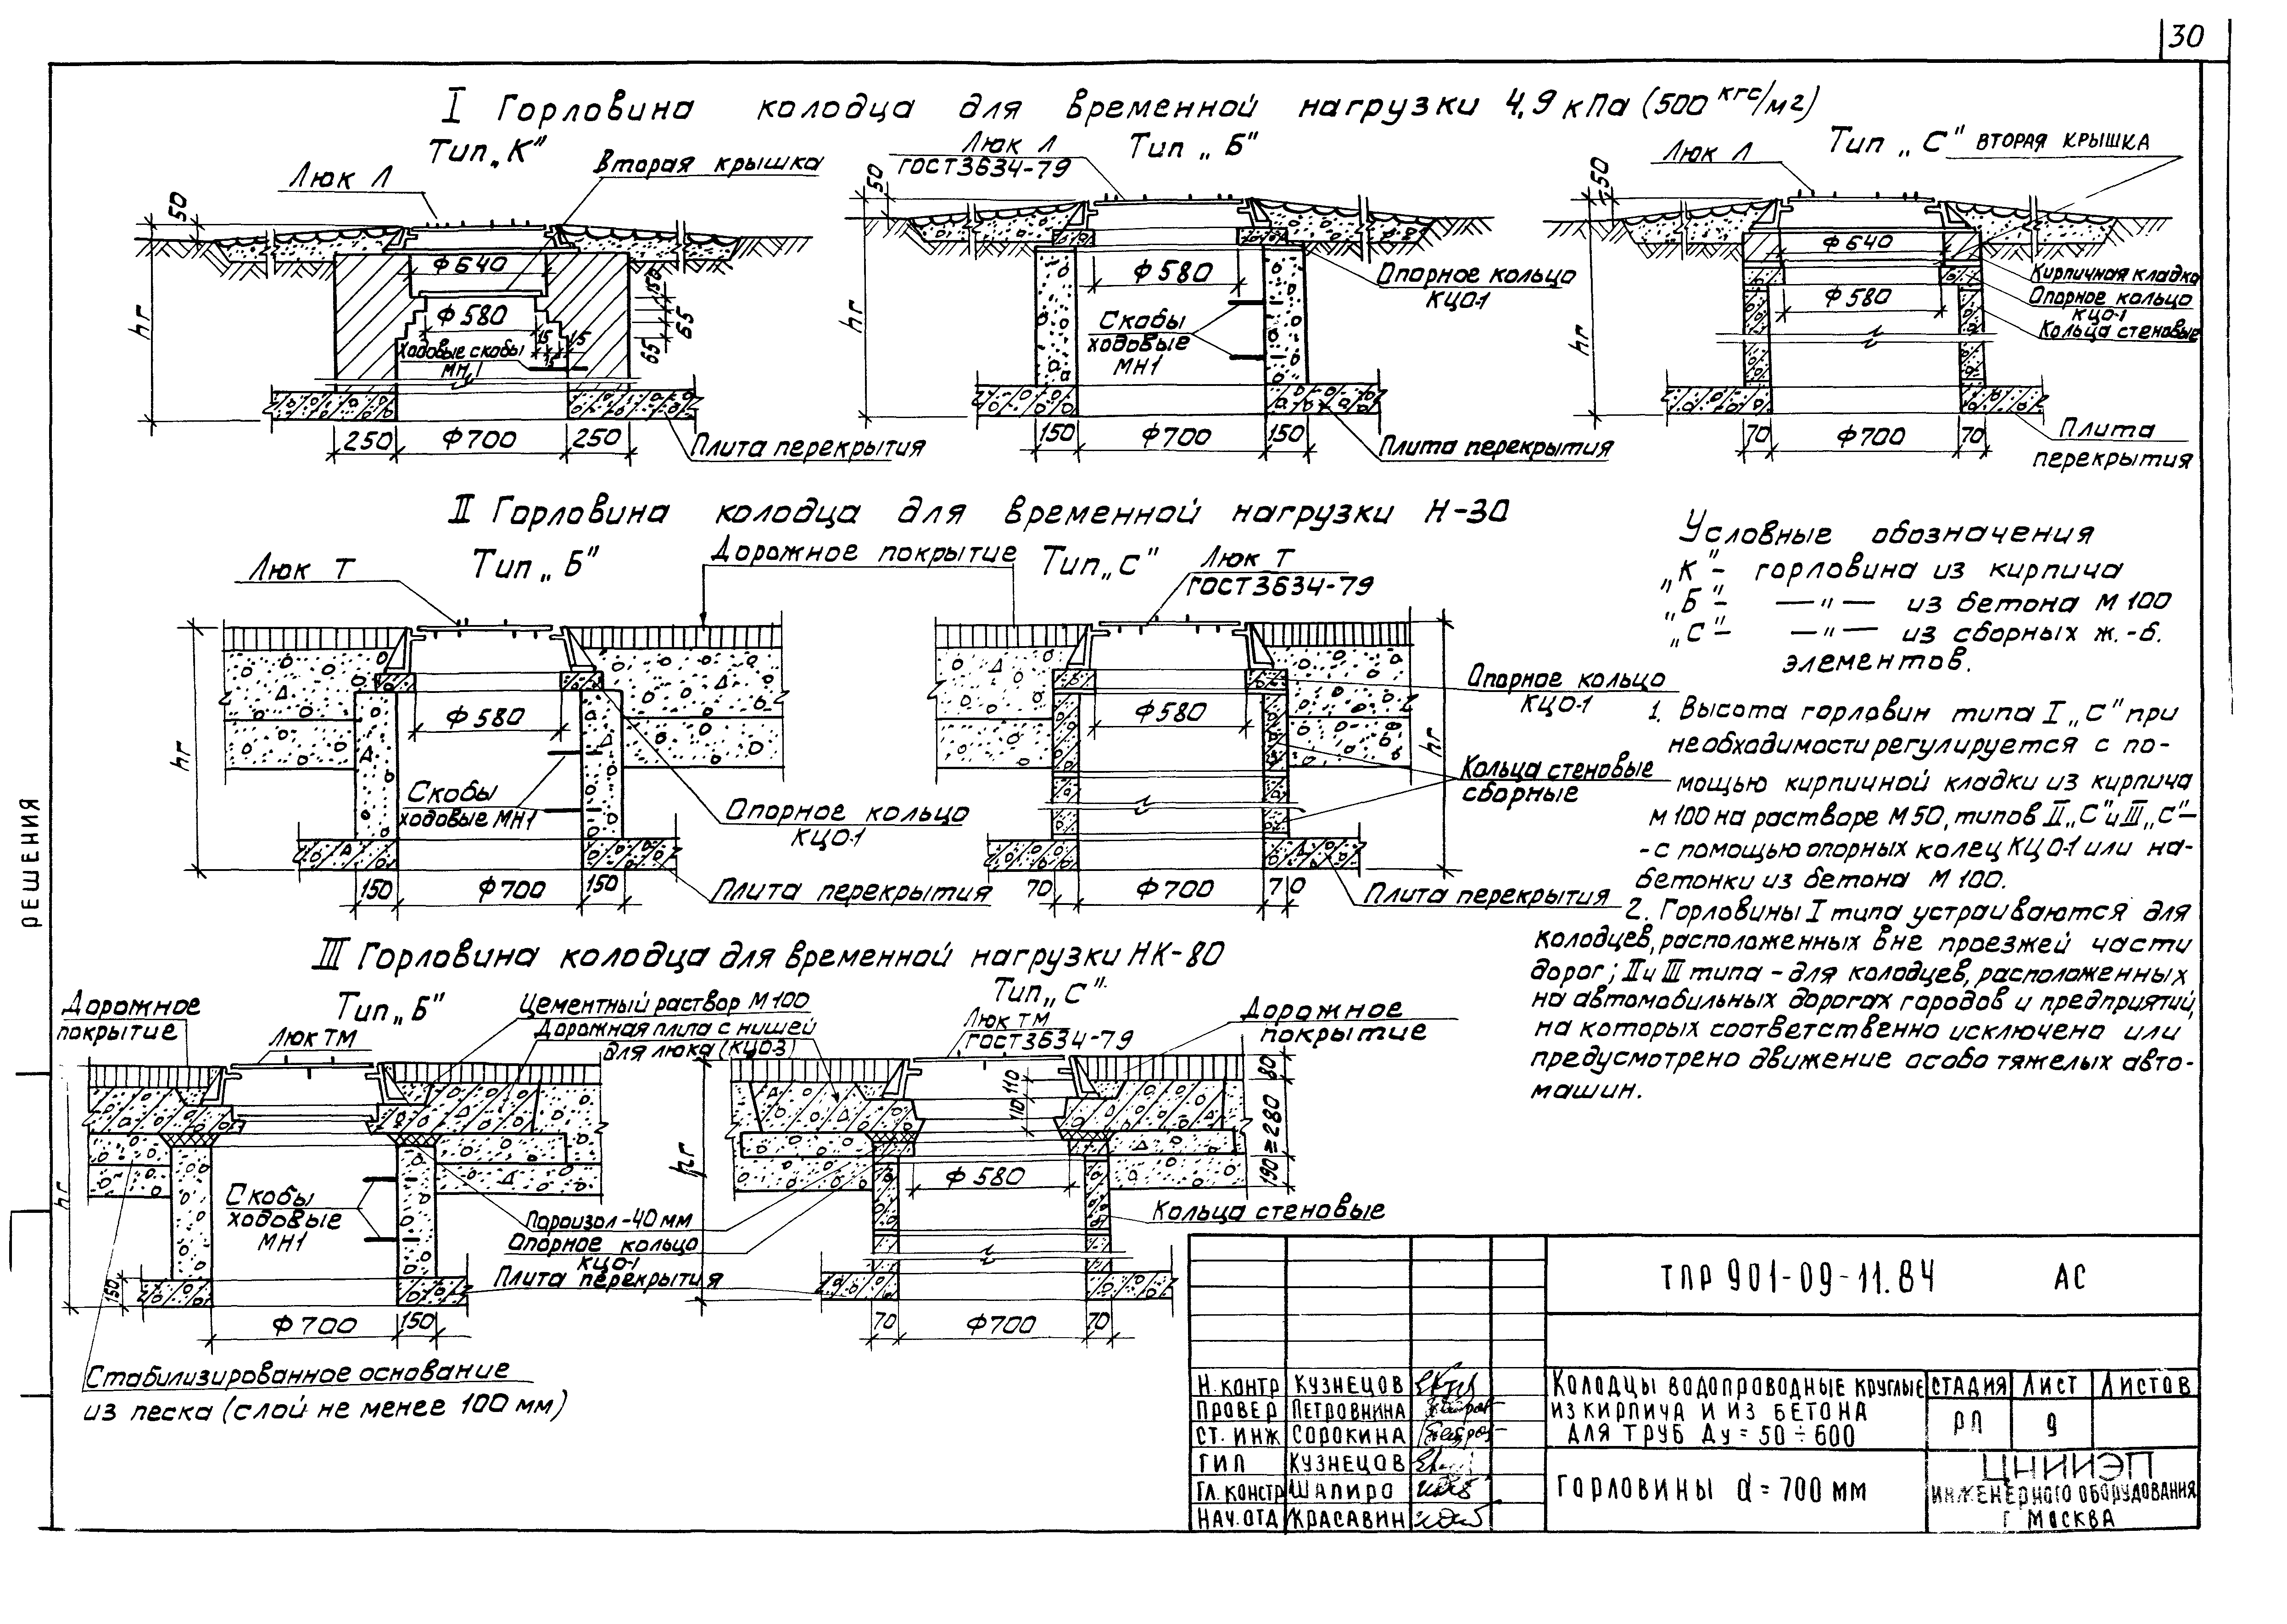 30
I Горловина колодца для временной нагрузки 4,9 кПа (500 кгс/м2)
Тип „К"
Люк Л
Вторая крышка
50
hг
Ф640
Ф580
150
65
65
15
15
15
Ходовые скобы
МН1
250
Ф700
250
Плита перекрытия
Тип „Б"
Люк Л
ГОСТ 3634-79
50
hг
Ф580
Опорное кольцо
КЦО-1
Скобы
ходовые
МН1
150
Ф700
150
Плита перекрытия
Тип „С"
Люк Л
ВТОРАЯ КРЫШКА
50
hг
Ф640
Ф580
Кирпичная кладка
Опорное кольцо
КЦО-1
Кольца стеновые
70
Ф700
70
Плита
перекрытия
II Горловина колодца для временной нагрузки Н-30
Тип „Б"
Люк Т
Дорожное покрытие
hг
Ф580
Скобы
ходовые МН1
Опорное кольцо
КЦО-1
150
Ф700
150
Плита перекрытия
Тип „С"
Люк Т
ГОСТ 3634-79
Ф580
hг
Опорное кольцо
КЦО-1
Кольца стеновые
сборные
70
Ф700
70
Плита перекрытия
Условные обозначения
„К" - горловина из кирпича
„Б" - —"— из бетона М 100
„С" - —"— из сборных ж.-б.
элементов.
1. Высота горловин типа I „С" при
необходимости регулируется с по-
мощью кирпичной кладки из кирпича
М 100 на растворе М 50, типов II „С" и III „С" –
- с помощью опорных колец КЦО-1 или на-
бетонки из бетона М 100.
2. Горловины I типа устраиваются для
колодцев, расположенных вне проезжей части
дорог; II и III типа - для колодцев, расположенных
на автомобильных дорогах городов и предприятий,
на которых соответственно исключено или
предусмотрено движение особо тяжелых авто-
машин.
III Горловина колодца для временной нагрузки НК-80
Дорожное
покрытие
Тип „Б"
Люк ТМ
Цементный раствор М 100
Дорожная плита с нишей
для люка (КЦО-3)
hг
Скобы
ходовые
МН1
Пороизол - 40 мм
Опорное кольцо
КЦО-1
Плита перекрытия
150
Ф700
150
Стабилизированное основание
из песка (слой не менее 100 мм)
Тип „С"
Люк ТМ
ГОСТ 3634-79
Дорожное
покрытие
hг
110
110
80
≥280
190
Ф580
Кольца стеновые
70
Ф700
70
РЕШЕНИЯ
ТПР 901-09-11.84 АС
Н. КОНТР КУЗНЕЦОВ
ПРОВЕР ПЕТРОВНИНА
СТ. ИНЖ СОРОКИНА
ГИП КУЗНЕЦОВ
ГЛ. КОНСТР ШАПИРО
НАЧ. ОТД КРАСАВИН
КОЛОДЦЫ ВОДОПРОВОДНЫЕ КРУГЛЫЕ
ИЗ КИРПИЧА И ИЗ БЕТОНА
ДЛЯ ТРУБ Ду = 50 ÷ 600
СТАДИЯ ЛИСТ ЛИСТОВ
РП 9
ГОРЛОВИНЫ d = 700 мм
ЦНИИЭП
ИНЖЕНЕРНОГО ОБОРУДОВАНИЯ
Г МОСКВА